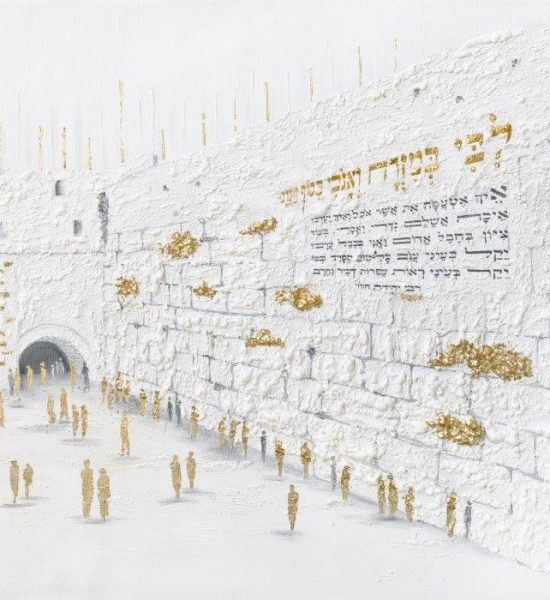 לבי במזרח ואנכי בסוף מערב
איך אטעמה את אשר אכל ואיך יערב
איכה אשלם נדרי ואסרי בעוד
ציון בחבל אדום ואני בכבל ערב
יקל בעיני עזב כל טוב ספרד כמו
יקר בעיני ראות עפרות דביר נחרב.
רבי יהודה הלוי